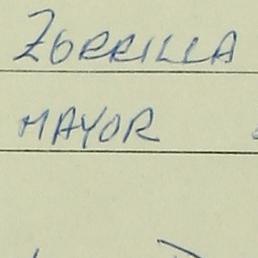 ZORRILLA
MAYOR